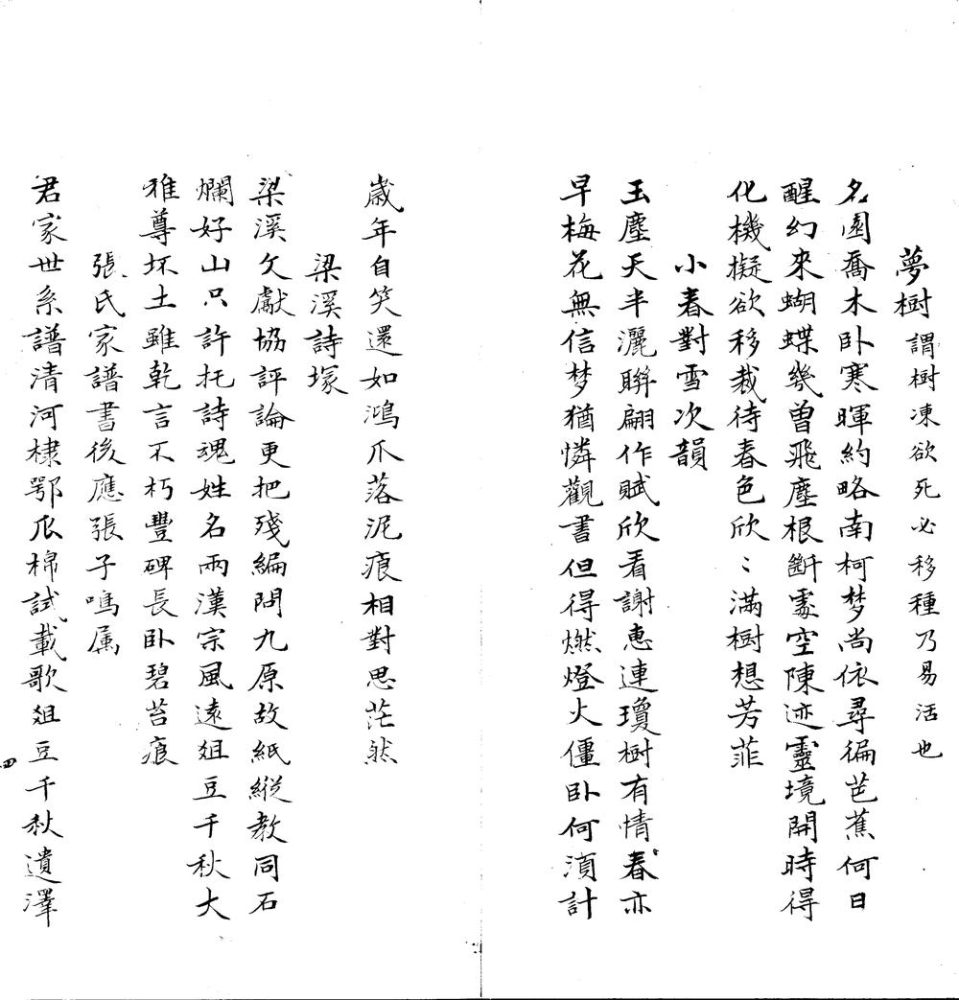 夢樹謂樹凍欲死必移種乃易活也
名園喬木卧寒暉約略南柯梦尚依尋徧芭蕉何日
醒幻來蝴蝶幾曽飛塵根斷處空陳迹靈境開時得
化機擬欲移栽待春色欣〻滿樹想芳菲
小春對雪次韻
玉塵天半灑聯翩作賦欣看謝惠連瓊樹有情春亦
早梅花無信梦猶憐觀書但得燃燈火僵卧何湏計
歲年自笑還如鴻爪落泥痕相對思茫然
梁溪詩塚
梁溪文獻協評論更把殘編問九原故紙縱教同石
爛好山只許托詩魂姓名兩漢宗風遠俎豆千秋大
雅尊坏土雖乾言不朽豐碑長卧碧苔痕
張氏家譜書後應張子鳴属
君家世系譜清河棣鄂瓜棉試載歌俎豆千秋遺澤
四